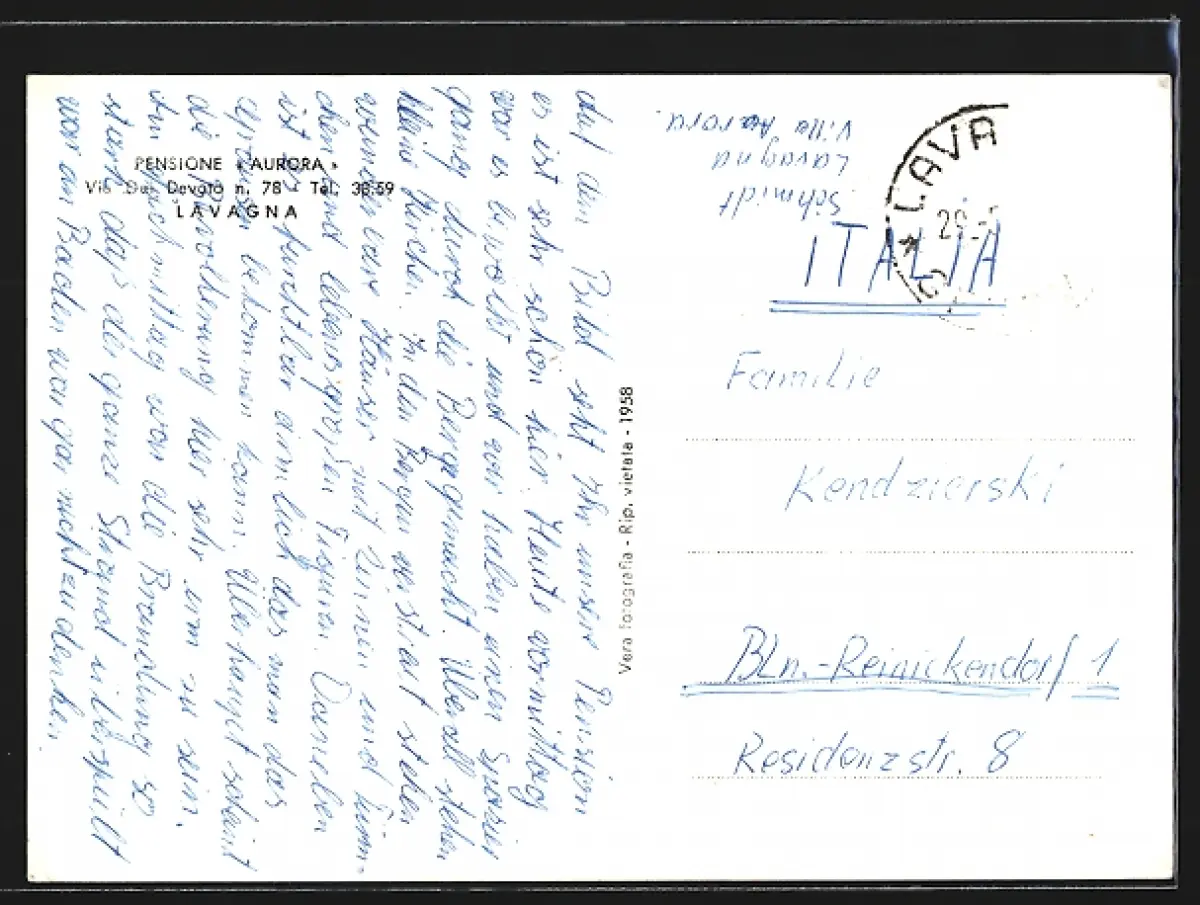 PENSIONE « AURORA »
Via Dei Devoto n. 78 - Tel. 38-59
LAVAGNA
Auf dem Bild seht Ihr unsere Pension
es ist sehr schön hier. Heute vormittag
war es bewölkt und wir haben einen Spazier
gang durch die Berge gemacht. Überall stehen
kleine Kirchen. In den Bergen verstreut stehen
wunderbare Häuser mit Zinnen und Türm-
chen und lebensgroßen Figuren. Daneben
ist es furchtbar ärmlich das man das
Grausen bekommen kann. Überhaupt scheint
die Bevölkerung hier sehr arm zu sein.
Am Nachmittag war die Brandung so
stark daß der ganze Strand überspült
war an Baden war gar nicht zu denken.
Vera fotografia - Rip. vietata - 1958
Schmidt
Lavagna
Villa Aurora.
LAVA
29
ITALIA
Familie
Kendzierski
Bln.-Reinickendorf 1
Residenzstr. 8